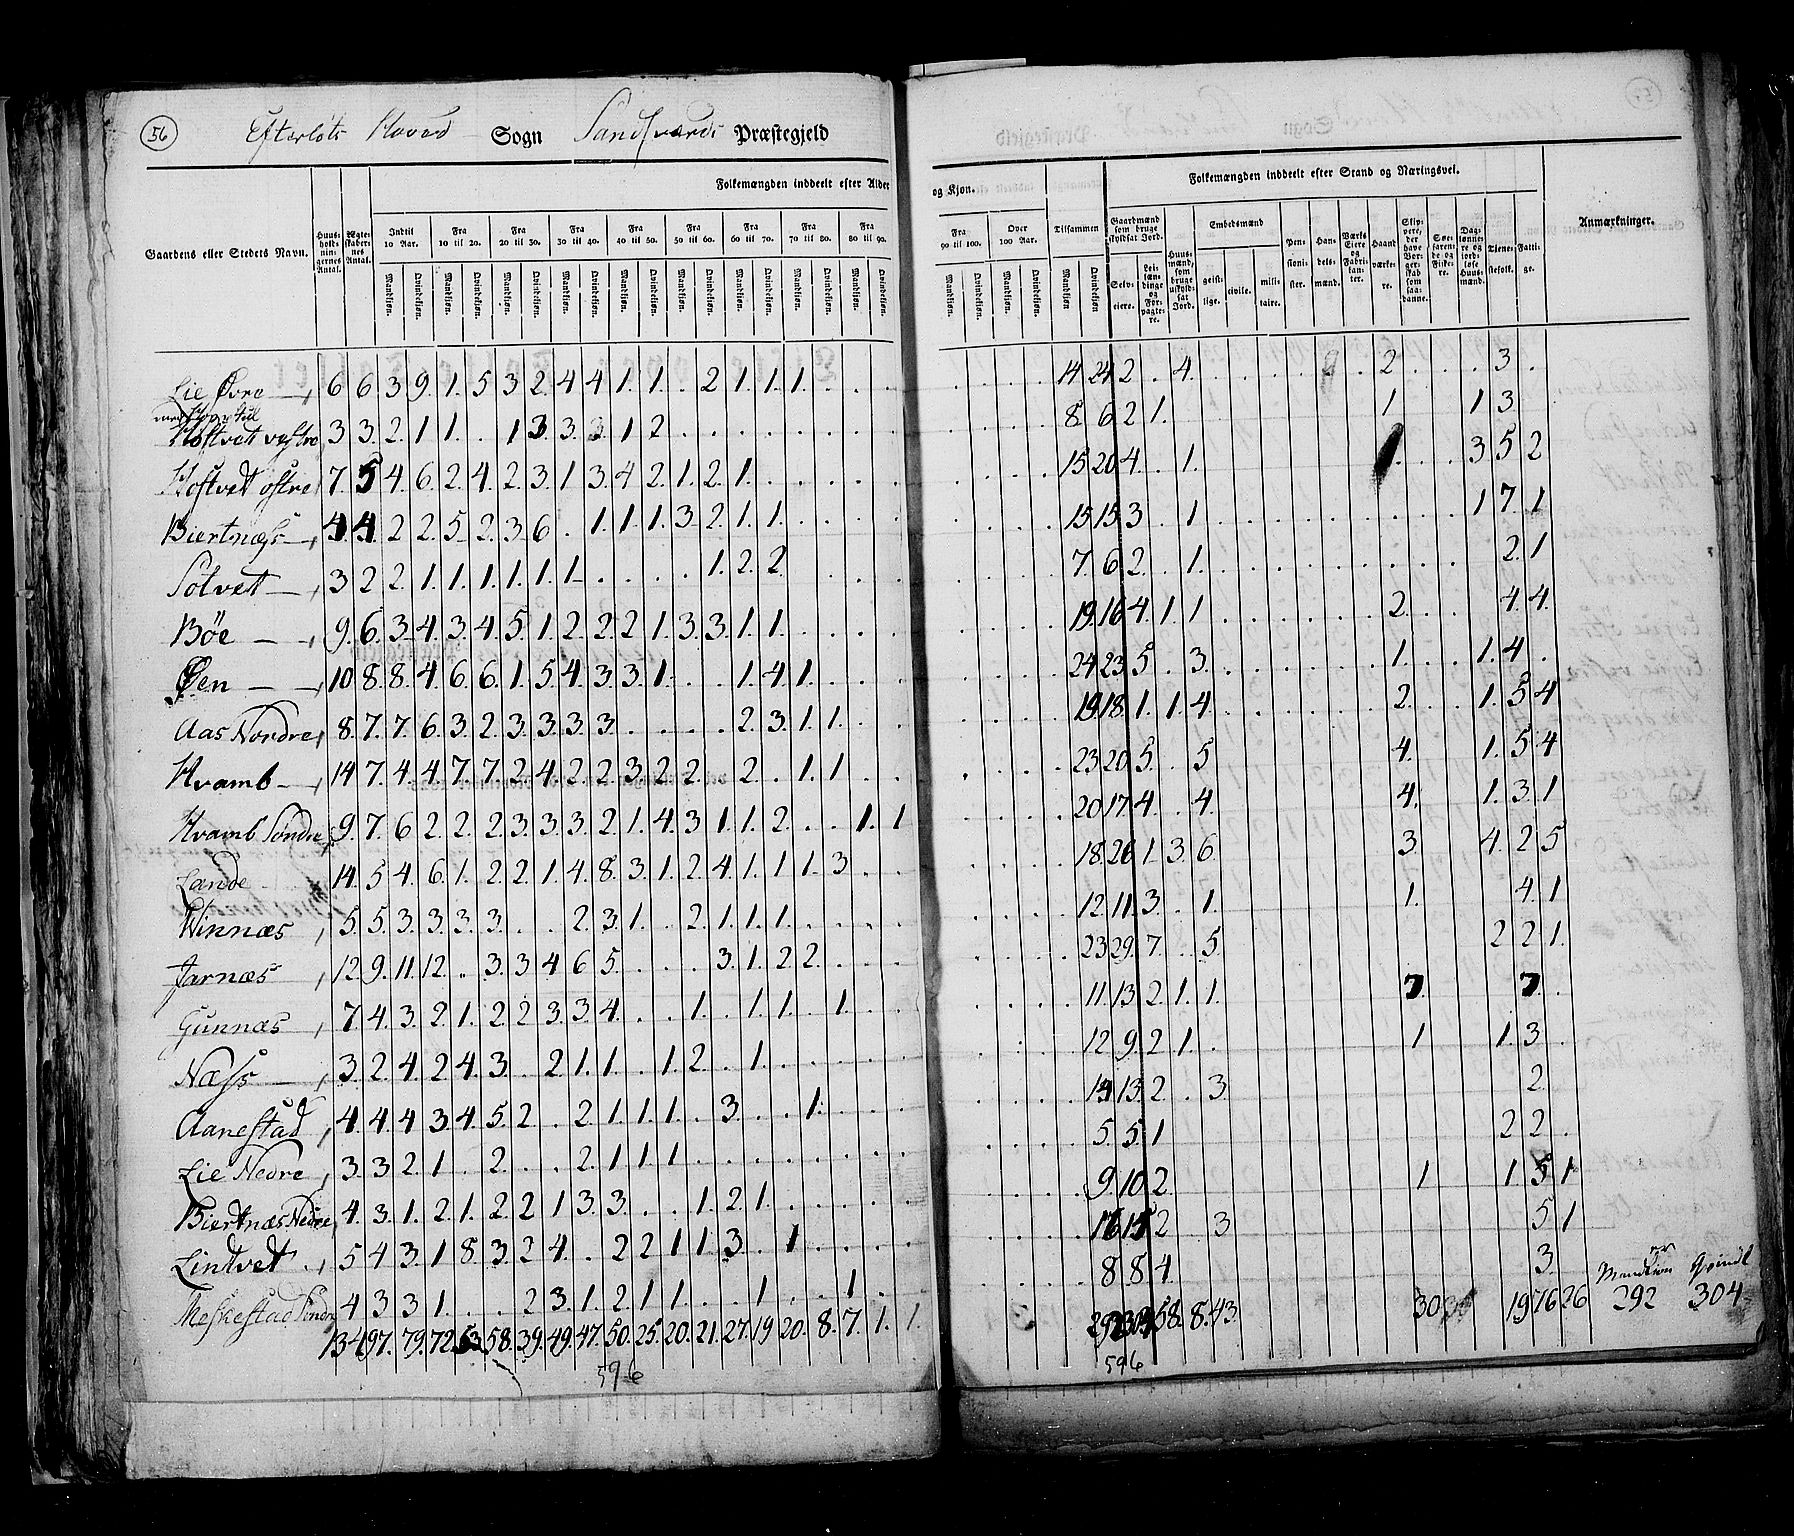 56
Efterløts Hoved Sogn Sandsværds Præstegjeld
Gaardens eller Stedets Navn.
Huus-holdnin-gernes Antal.
Ægte-skaber-nes Antal.
Folkemængden inddeelt efter Alder
Indtil 10 Aar. Fra 10 til 20. Fra 20 til 30. Fra 30 til 40. Fra 40 til 50. Fra 50 til 60. Fra 60 til 70. Fra 70 til 80. Fra 80 til 90.
Mandkjøn. Qvindekjøn. Mandkjøn. Qvindekjøn. Mandkjøn. Qvindekjøn. Mandkjøn. Qvindekjøn. Mandkjøn. Qvindekjøn. Mandkjøn. Qvindekjøn. Mandkjøn. Qvindekjøn. Mandkjøn. Qvindekjøn. Mandkjøn. Qvindekjøn.
Lie Øvre 6 6 3 9 1 5 3 2 4 4 1 1 . 2 1 1 1
Hostvet vestre 3 3 2 1 1 . 1 3 3 3 1 2
Hostvedt østre 7 5 4 6 2 4 2 3 1 3 4 2 1 2 1
Biertnæss 4 4 2 2 5 2 3 6 . 1 1 1 3 2 1 1
Solvet 3 2 2 1 1 1 1 1 1 . . . . 1 2 2
Bøe 9 6 3 4 3 4 5 1 2 2 2 1 3 3 1 1
Øen 10 8 8 4 6 6 1 5 4 3 3 1 . . 1 4 1
Aas Nordre 8 7 7 6 3 2 3 3 3 3 . . . . 2 3 1 1
Hvamb 14 7 4 4 7 7 2 4 2 2 3 2 2 . 2 . 1 1
Hvamb Søndre 9 7 6 2 2 2 3 3 3 2 1 4 3 1 1 2 . . 1 1
Lande 14 5 4 6 1 2 2 1 4 8 3 1 2 4 1 1 1 3
Winnæs 5 5 3 3 3 3 . . 2 3 1 . 2 1 1 1
Jarnæs 12 9 11 12 . 3 3 4 6 5 . . . 3 1 2 2
Gunnæs 7 4 3 2 1 2 2 3 3 4 . . 1 . 1 1 . 1
Næss 3 2 4 2 4 3 . 2 1 1 . 1 2 . 1
Aanestad 4 4 4 3 4 5 2 . 2 1 1 1 . 3 . . 1
Lie Nedre 3 3 2 1 . 2 . . 2 1 1 1
Biertnæs Nedre 4 3 1 2 1 2 2 1 3 3 . . 1 2 1
Lindvet 5 4 3 1 8 3 2 4 . 2 2 1 1 3 . 1
Meskestad Søndre 4 3 3 1 . . 2 3 1 2 1 1 . . 1 . . 1
134 97 79 72 63 58 39 49 47 50 25 20 21 27 19 20 8 7 1 1
596
og Kjøn.
Fra 90 til 100. Over 100 Aar. Tilsammen
Mandkjøn. Qvindekjøn. Mandkjøn. Qvindekjøn. Mandkjøn Qvindekjøn
Folkemængden inddeelt efter Stand og Næringsvei.
Gaardmænd som bruge skyldsat Jord.
Selv-eiere. Lei-læn-dinge og For-pagte-re.
Huus-mænd, som bruge uskyld-sat Jord.
Embedsmænd
geist-lige. civile. mili-taire.
Pen-sioni-ster. Han-dels-mænd. Værks Eiere og Fabri-kan-ter. Haand værke-re.
Dag-lønne-re og jord-løse Huus-mænd. Tjene-stefolk. Fatti-ge.
Anmærkninger.
14 24 2 . 4 2 3
8 6 2 1 1 1 3
15 20 4 . 1 3 5 2
15 15 3 . 1 1 7 1
7 6 2 . 1 2 1
19 16 4 1 1 2 4 4
24 23 5 . 3 1 1 4
19 18 1 1 4 2 1 5 4
23 20 5 . 5 4 1 5 4
20 17 4 . 4 4 1 3 1
18 26 1 3 6 3 4 2 5
12 11 3 . 1 1 4 1
23 29 7 . 5 2 2 1
11 13 2 1 1 7 7
12 9 2 1 1 1 3
14 13 2 . 3 2
5 5 1 2 2
9 10 2 1 1 5 1
16 15 2 . 3 5 1
8 8 4 3
Mandkiøn Qvindk
292 304 58 8 43 30 19 76 26 292 304
596